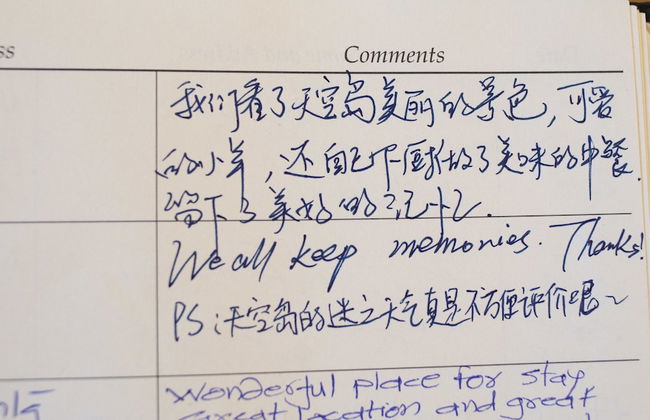 ss
Comments
我们看了天空岛美丽的景色，可爱
的小羊，还自己下厨做了美味的中餐.
留下了美好的记忆.
We all keep memories. Thanks!
PS:天空岛的迷之天气真是不方便评价呢～
Wonderful place for stay
great location and great